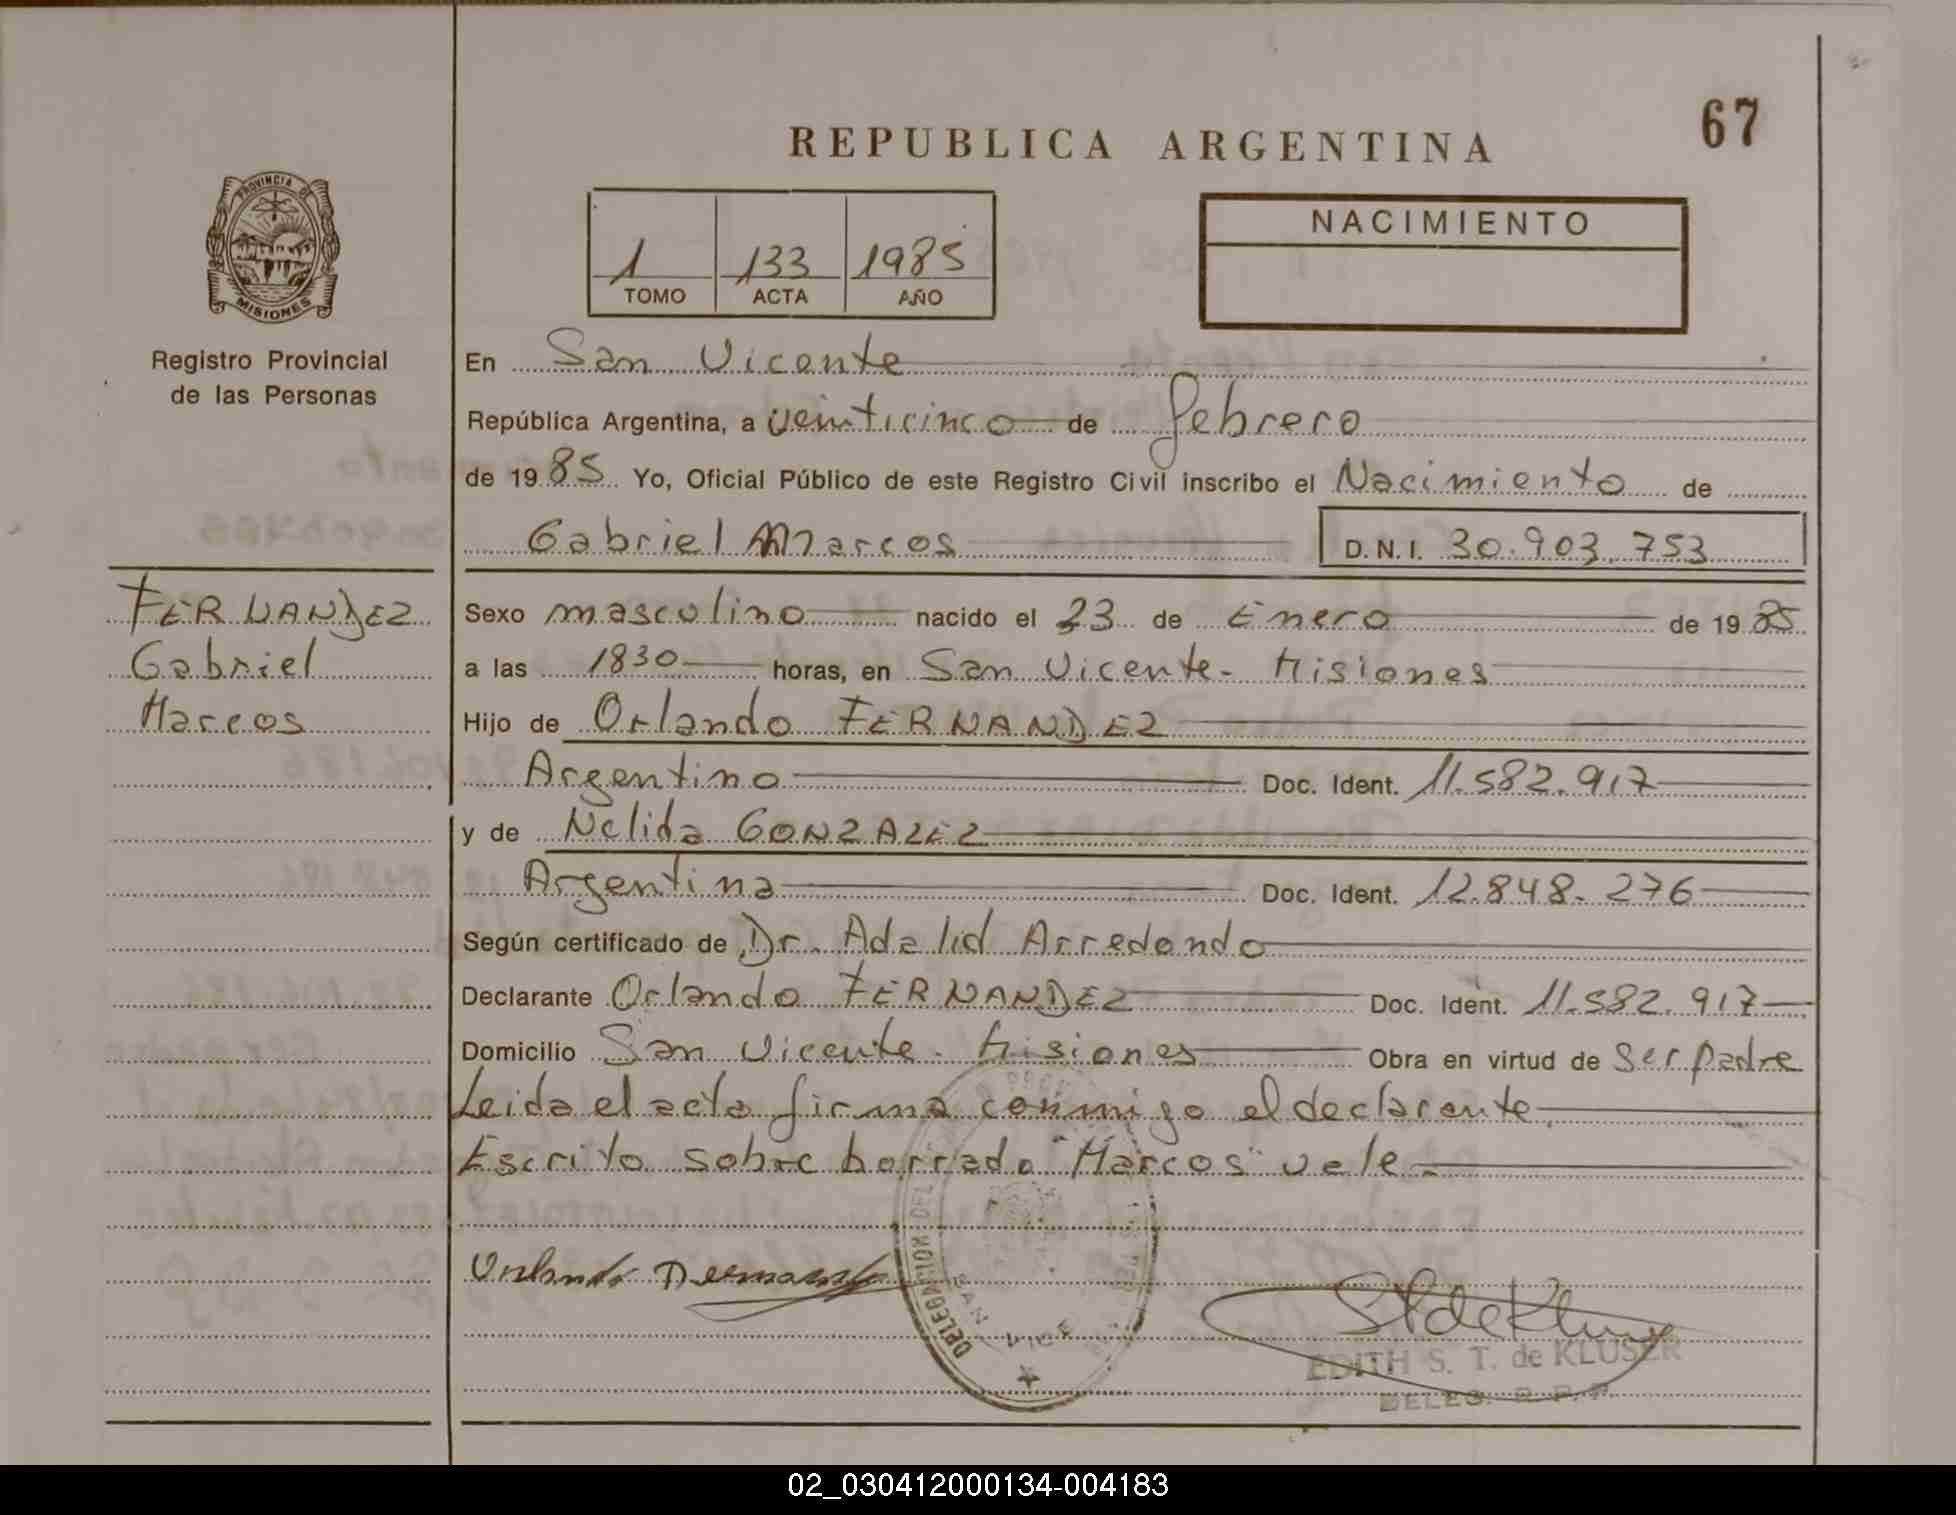 67
REPUBLICA ARGENTINA
PROVINCIA DE
MISIONES
Registro Provincial
de las Personas
1 133 1985
TOMO ACTA AÑO
NACIMIENTO
En San Vicente
República Argentina, a veinticinco de febrero
de 1985 Yo, Oficial Público de este Registro Civil inscribo el Nacimiento de
Gabriel Marcos D.N.I. 30.903.753
FERNANDEZ
Gabriel
Marcos
Sexo masculino nacido el 23 de Enero de 1985
a las 1830 horas, en San Vicente - Misiones
Hijo de Orlando FERNANDEZ
Argentino Doc. Ident. 11.582.917
y de Nelida GONZALEZ
Argentina Doc. Ident. 12.848.276
Según certificado de Dr. Adalid Arredondo
Declarante Orlando FERNANDEZ Doc. Ident. 11.582.917
Domicilio San Vicente - Misiones Obra en virtud de ser padre
Leida el acta firma conmigo el declarante
Escrito sobre borrado "Marcos" vale -
DELEGACION DEL
SAN VICE
EDITH S. T. de KLUSER
DELEG. R. P. P.
02_030412000134-004183